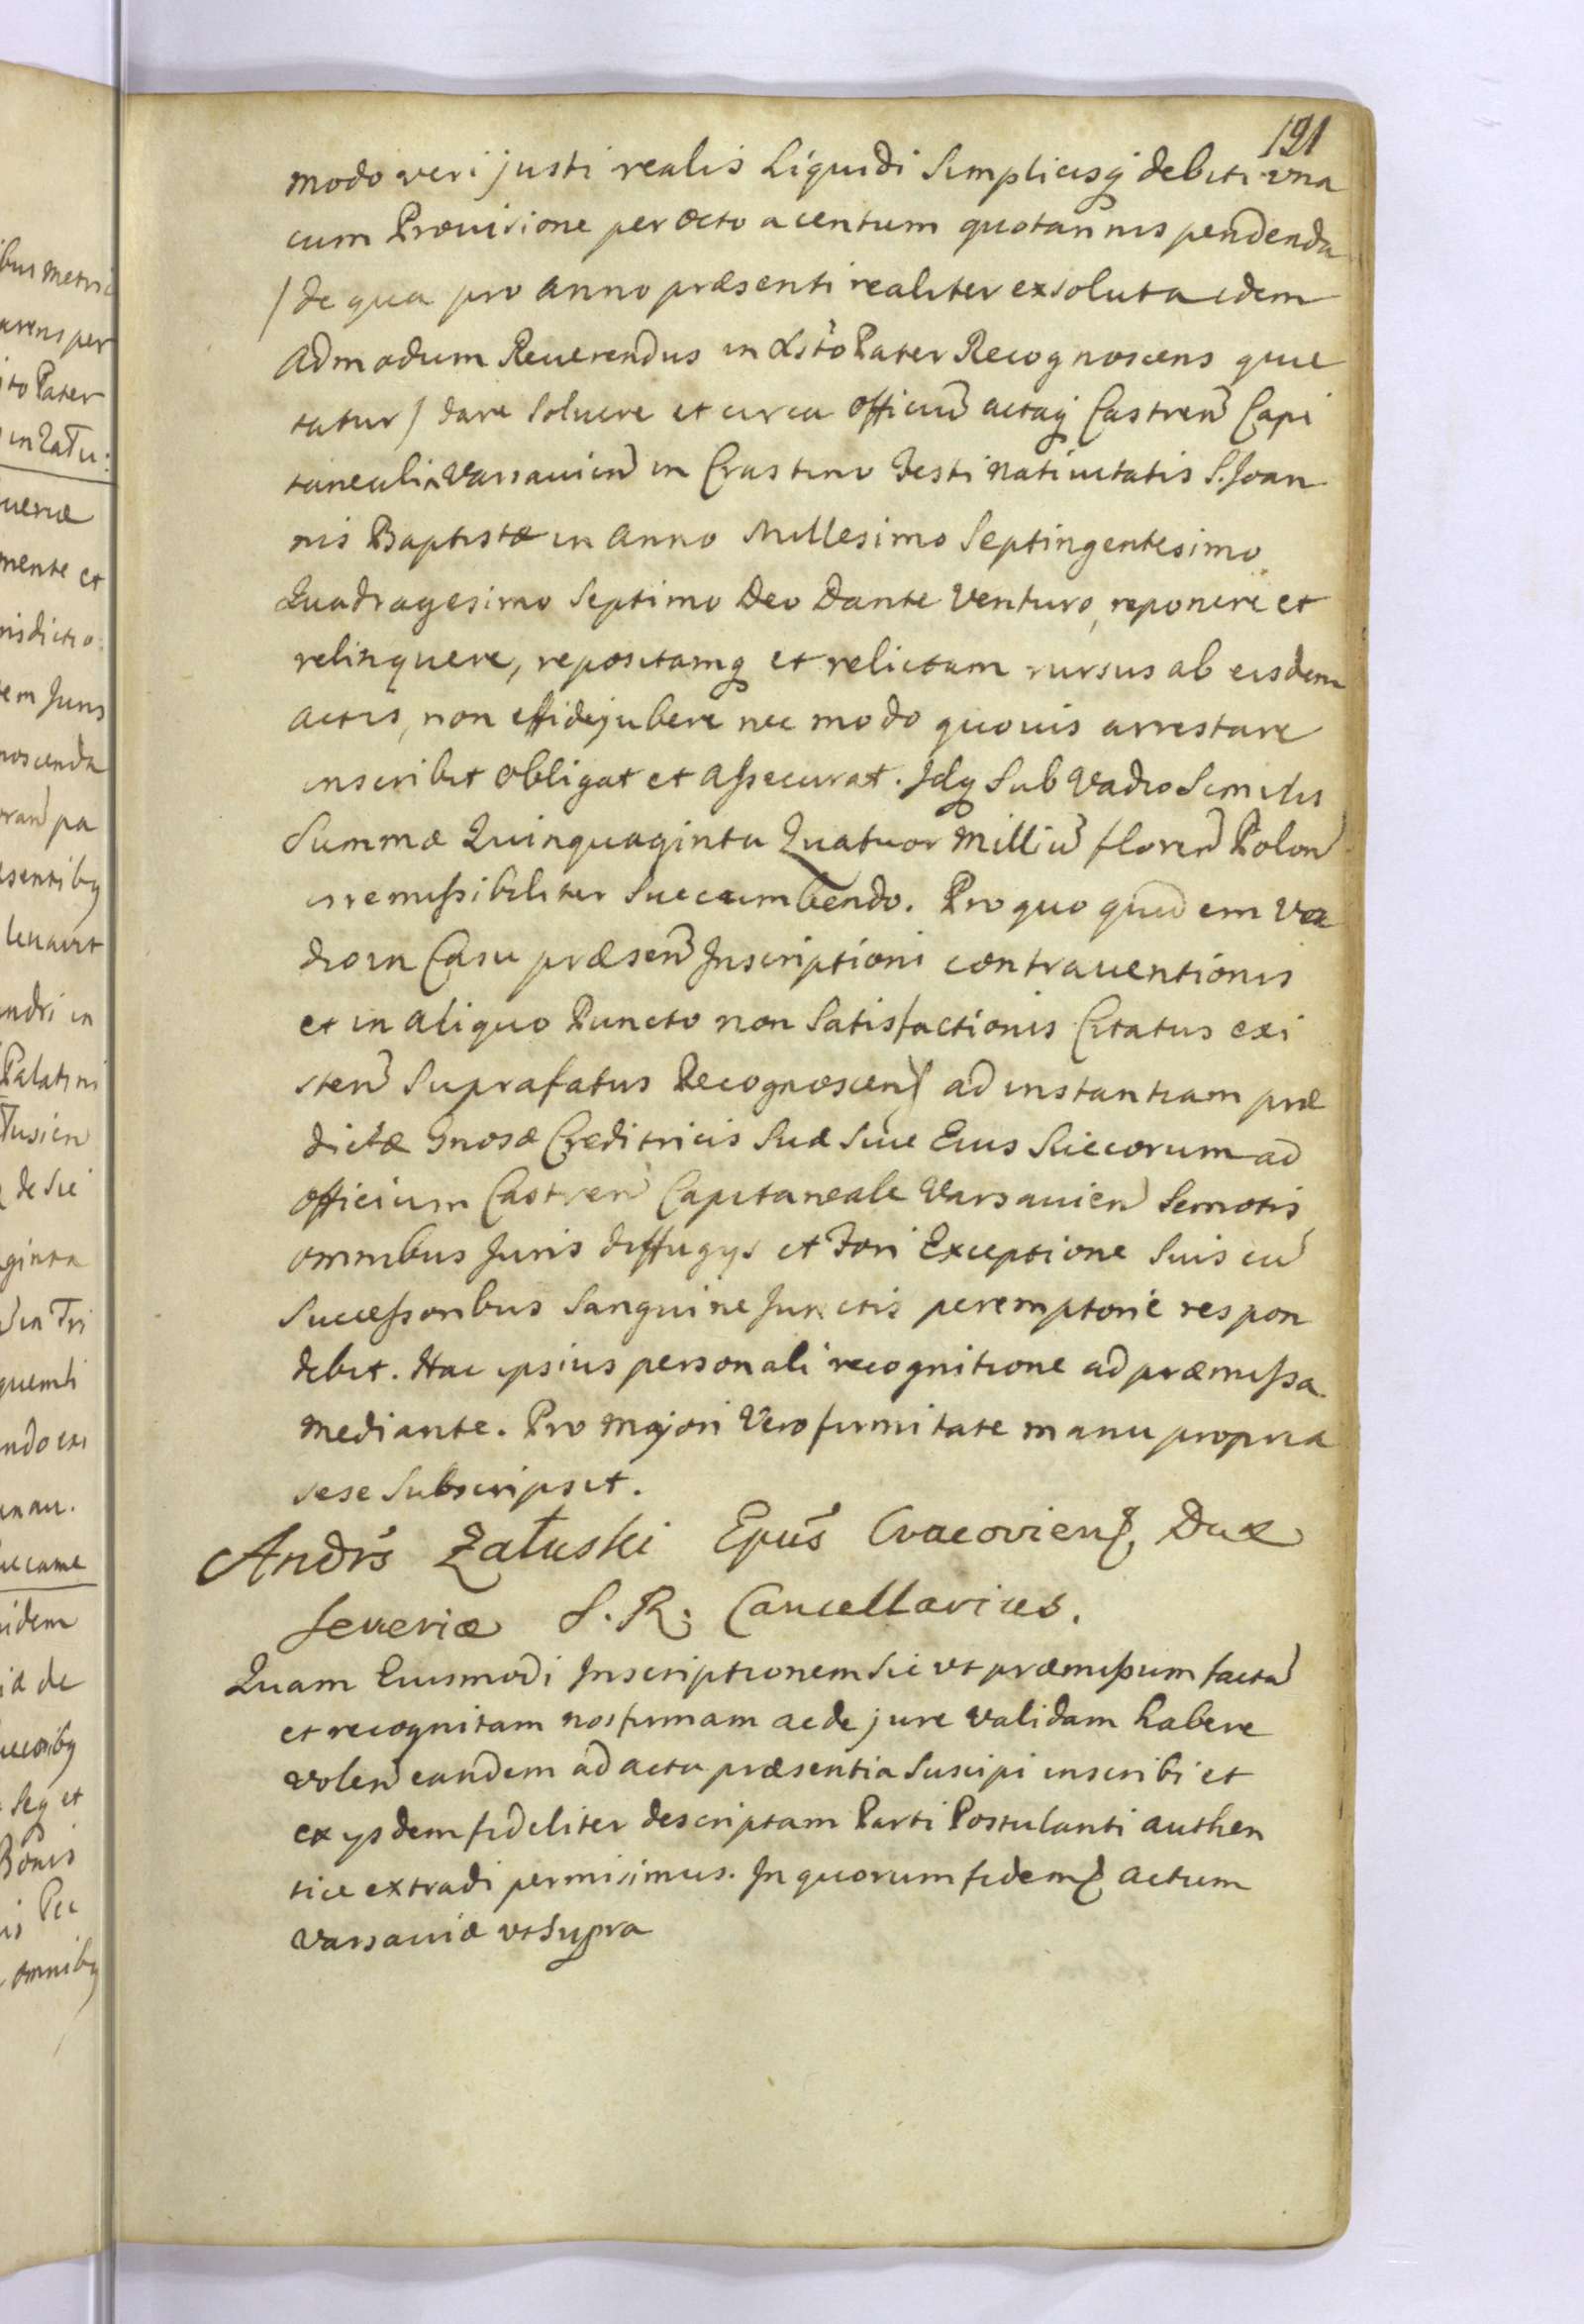 191
modo veri justi realis Liquidi Simplicisq; debiti vna
cum Prouisione per octo a centum quotannis pendenda
/ de qua pro anno præsenti realiter exsoluta idem
Admodum Reuerendus in Xsto Pater Recognoscens quie
tatur / dare Soluere et circa Officiũ actaq; Castreñ Capi
tanealia Varsauieñ in Crastino Festi Natiuitatis S. Joan
nis Baptistæ in Anno Millesimo Septingentesimo
Quadragesimo Septimo Deo Dante Venturo, reponere et
relinquere, repositamq; et relictam rursus ab eisdem
actis, non effidejubere nec modo quouis arrestare
inscribit Obligat et Assecurat. Jdq; Sub Vadio Similis
Summæ Quinquaginta Quatuor Milliũ floreñ Poloñ
irremissibiliter Succumbendo. Pro quo quidem Va
dio in Casu præseñ Jnscriptioni contrauentionis
et in aliquo Puncto non Satisfactionis Citatus exi
steñ Suprafatus Recognoscens ad instantiam præ
dictæ Gnosæ Creditricis Suæ Siue Eius Succorum ad
Officium Castreñ Capitaneale Varsauieñ Semotis
omnibus Juris diffugys et Fori Exceptione Suis cũ
Successoribus Sanguine Junctis peremptorie respon
debit. Hac ipsius personali recognitione ad præmissa
mediante. Pro Majori Vero firmitate manu propria
sese Subscripsit.
Andrs Załuski Epus Cracoviens, Dux
Severiæ S. R. Cancellarius.
Quam Eiusmodi Jnscriptionem Sic vt præmissum factã
et recognitam nos firmam ac de jure Validam habere
voleñ eandem ad acta præsentia Suscipi inscribi et
ex ysdem fideliter descriptam Parti Postulanti authen
tice extradi permisimus. Jn quorum fidem Actum
Varsauiæ vt Supra
ibus Metric
arens per
to Pater
mente et
em Juris
noscenda
leuauit
ndri in
Palatini
de Sie
ginta
quemli
idem
iæ de
Seq et
Bonis
omniby